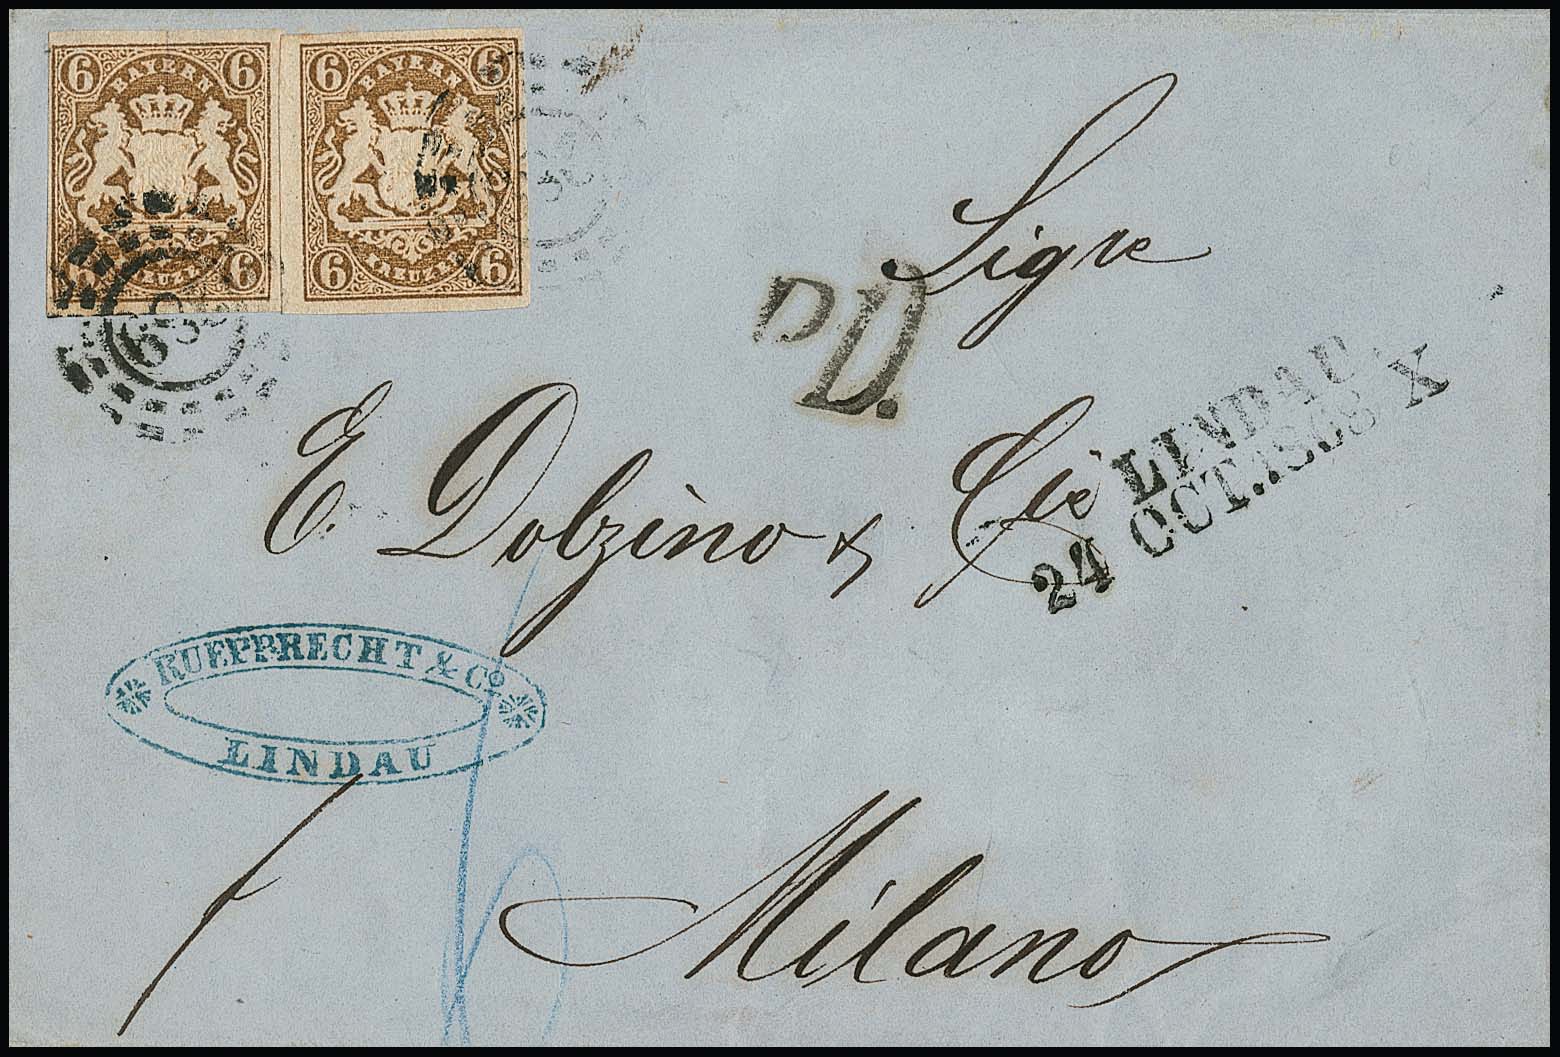 6 BAYERN 6
6 6
6 BAYERN 6
6 KREUZER 6
Sigre
P.D.
E. Dolzino & Cie
LINDAU
24 OCT. 1868 X
RUEPPRECHT & Co.
LINDAU
Milano